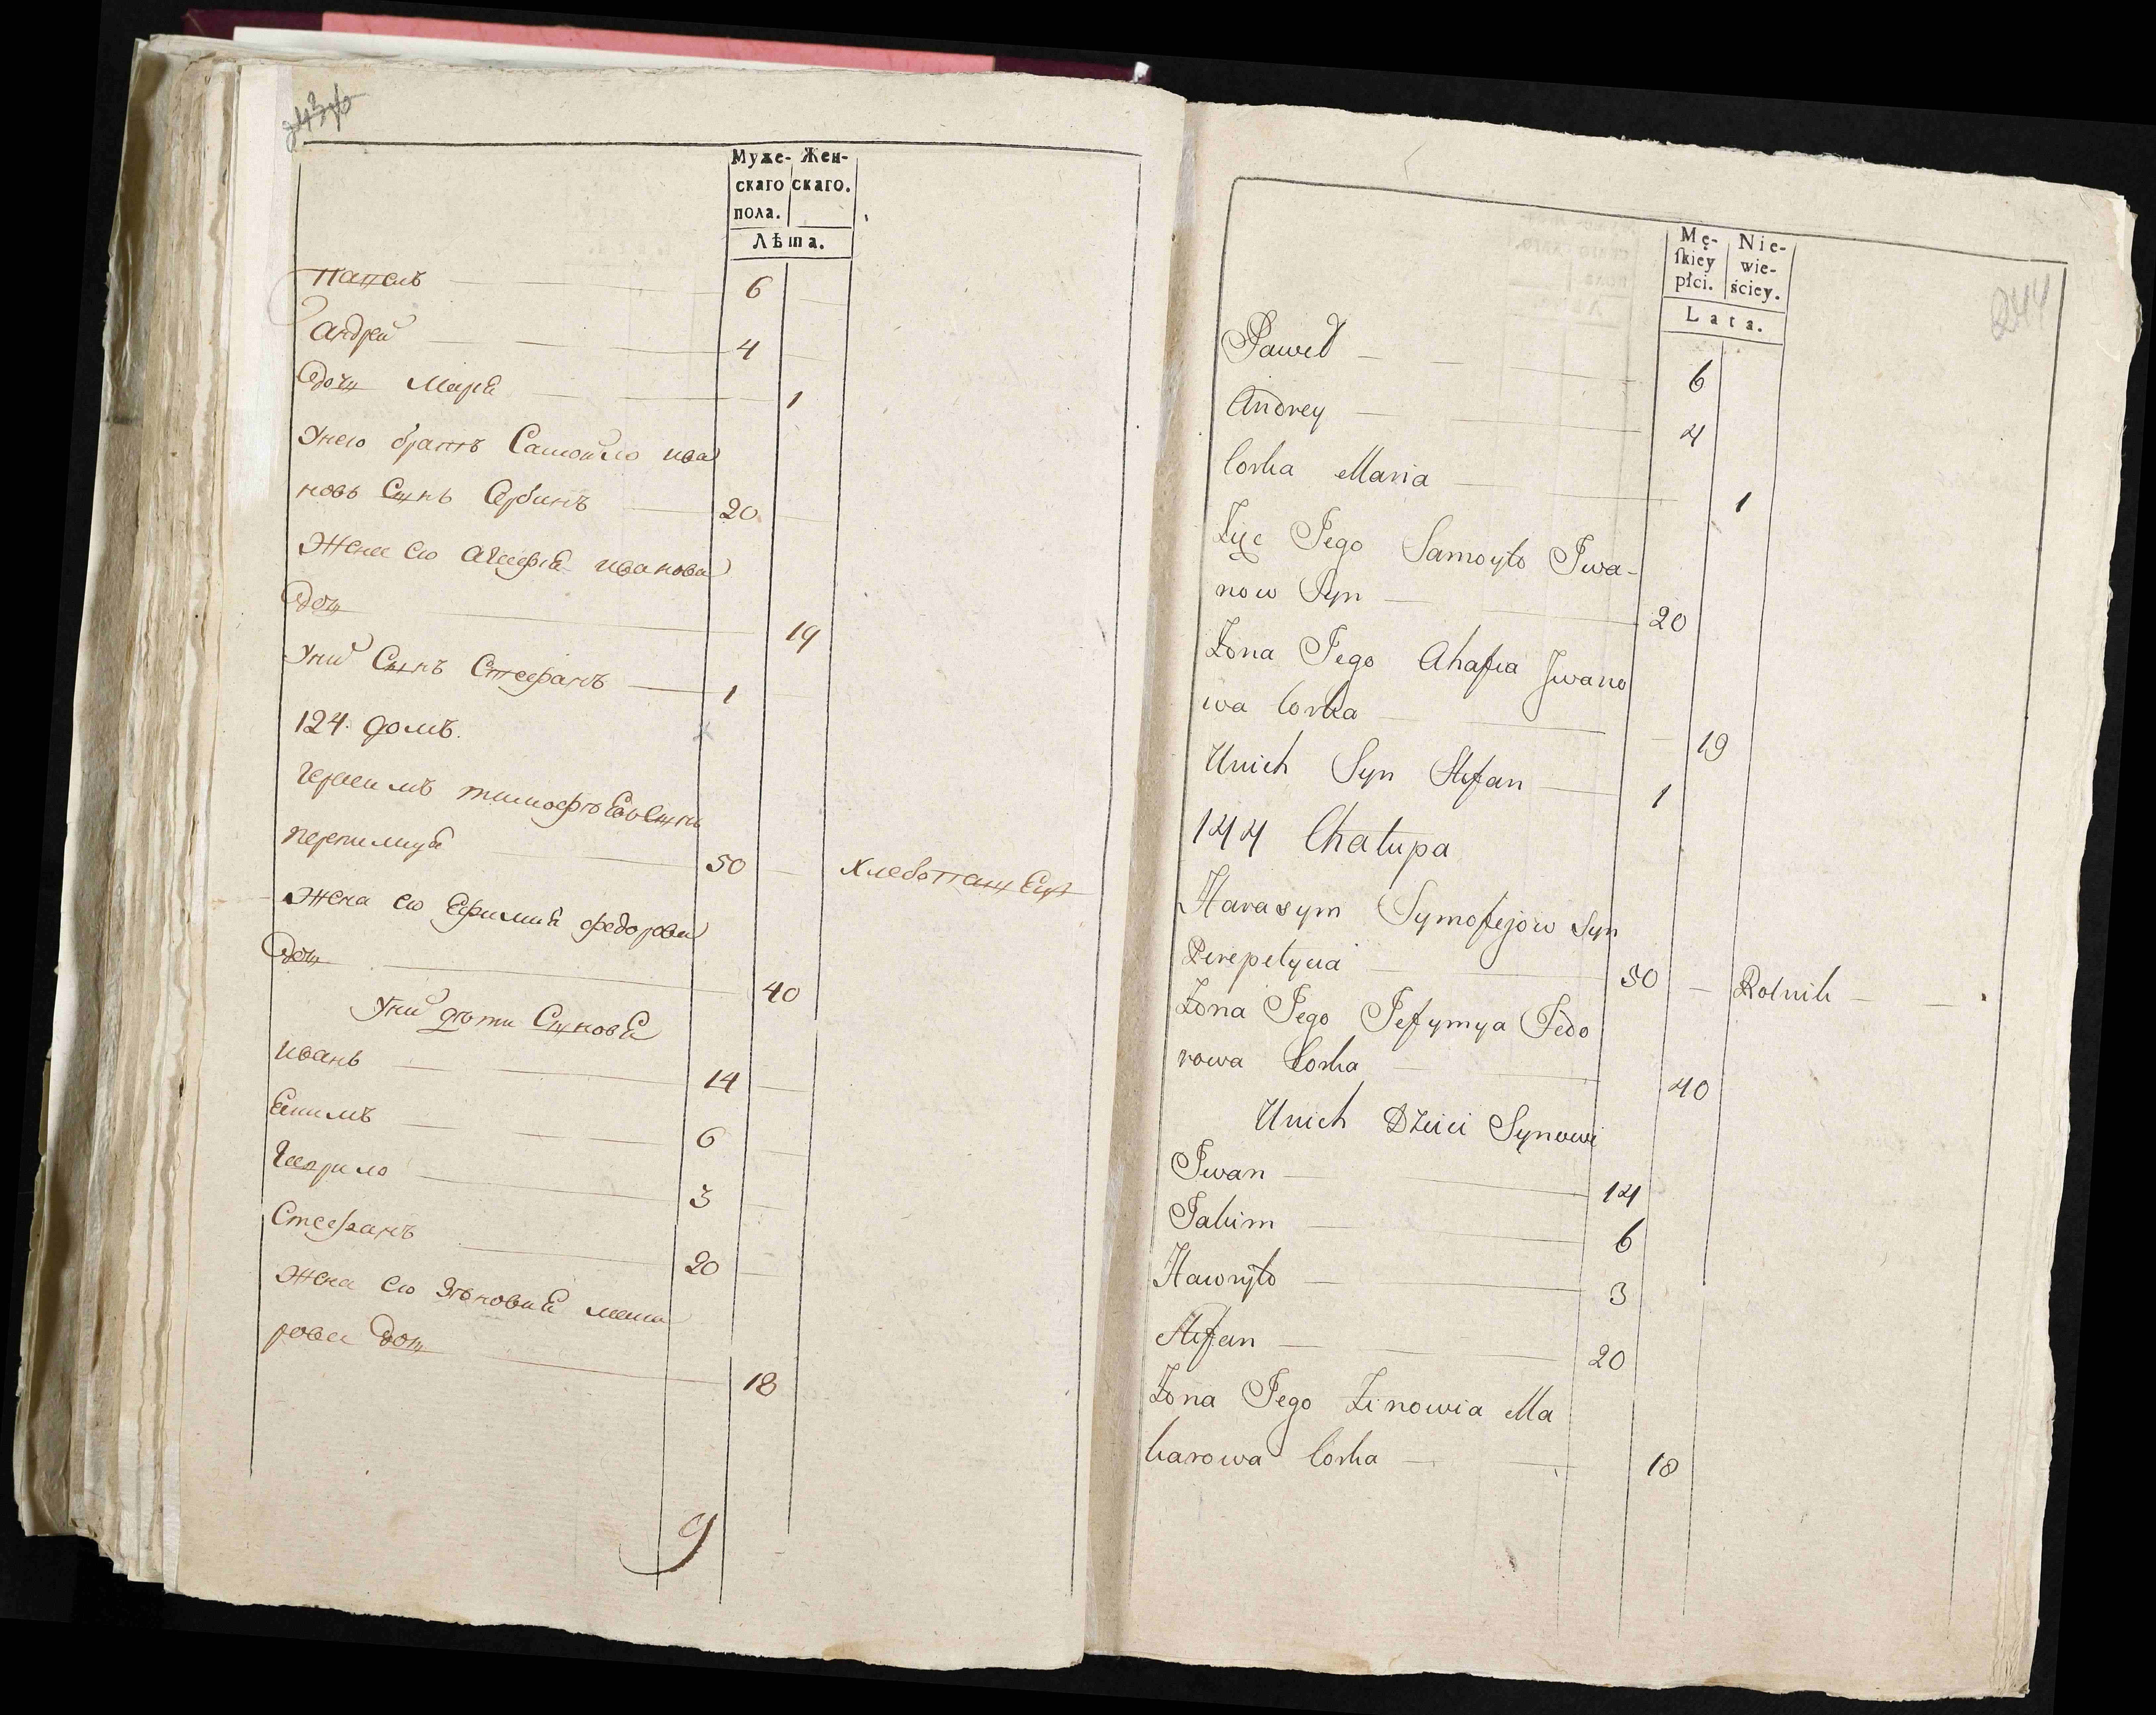 243 об
Муже- Жен-
скаго скаго.
пола.
Лѣта.
Павелъ 6
Андрей 4
Дочь Мария 1
Унего братъ Самойло ива
новъ Сынъ Сербинъ 20
Жена его Агафия иванова
Дочь 19
Уних Сынъ Стефанъ 1
124 домъ.
Герасимъ тимофѣевъ Сынъ
перепилица 50 Хлебопашец
Жена его Ефимия федорова
Дочь 40
Уних дѣти Сыновя
иванъ 14
Екимъ 6
Гаврило 3
Стефанъ 20
Жена его Зѣновия мака
рова Дочь 18
9
244
Mę- Nie-
ſkiey wie-
płci. ściey.
Lata.
Paweł 6
Andrey 4
Corka Maria 1
Jego Samoyło Iwa-
now Syn 20
Żona Jego Ahafia Iwano
wa Corka 19
Unich Syn Stefan 1
144 Chałupa
Harasym Tymofejow Syn
50 Rolnik
Żona Jego Jefymya Fedo
rowa Corka 40
Unich Dzieci Synowi
Iwan 14
Jakim 6
Hawryło 3
Stefan 20
Żona Jego Zinowia Ma
karowa Corka 18